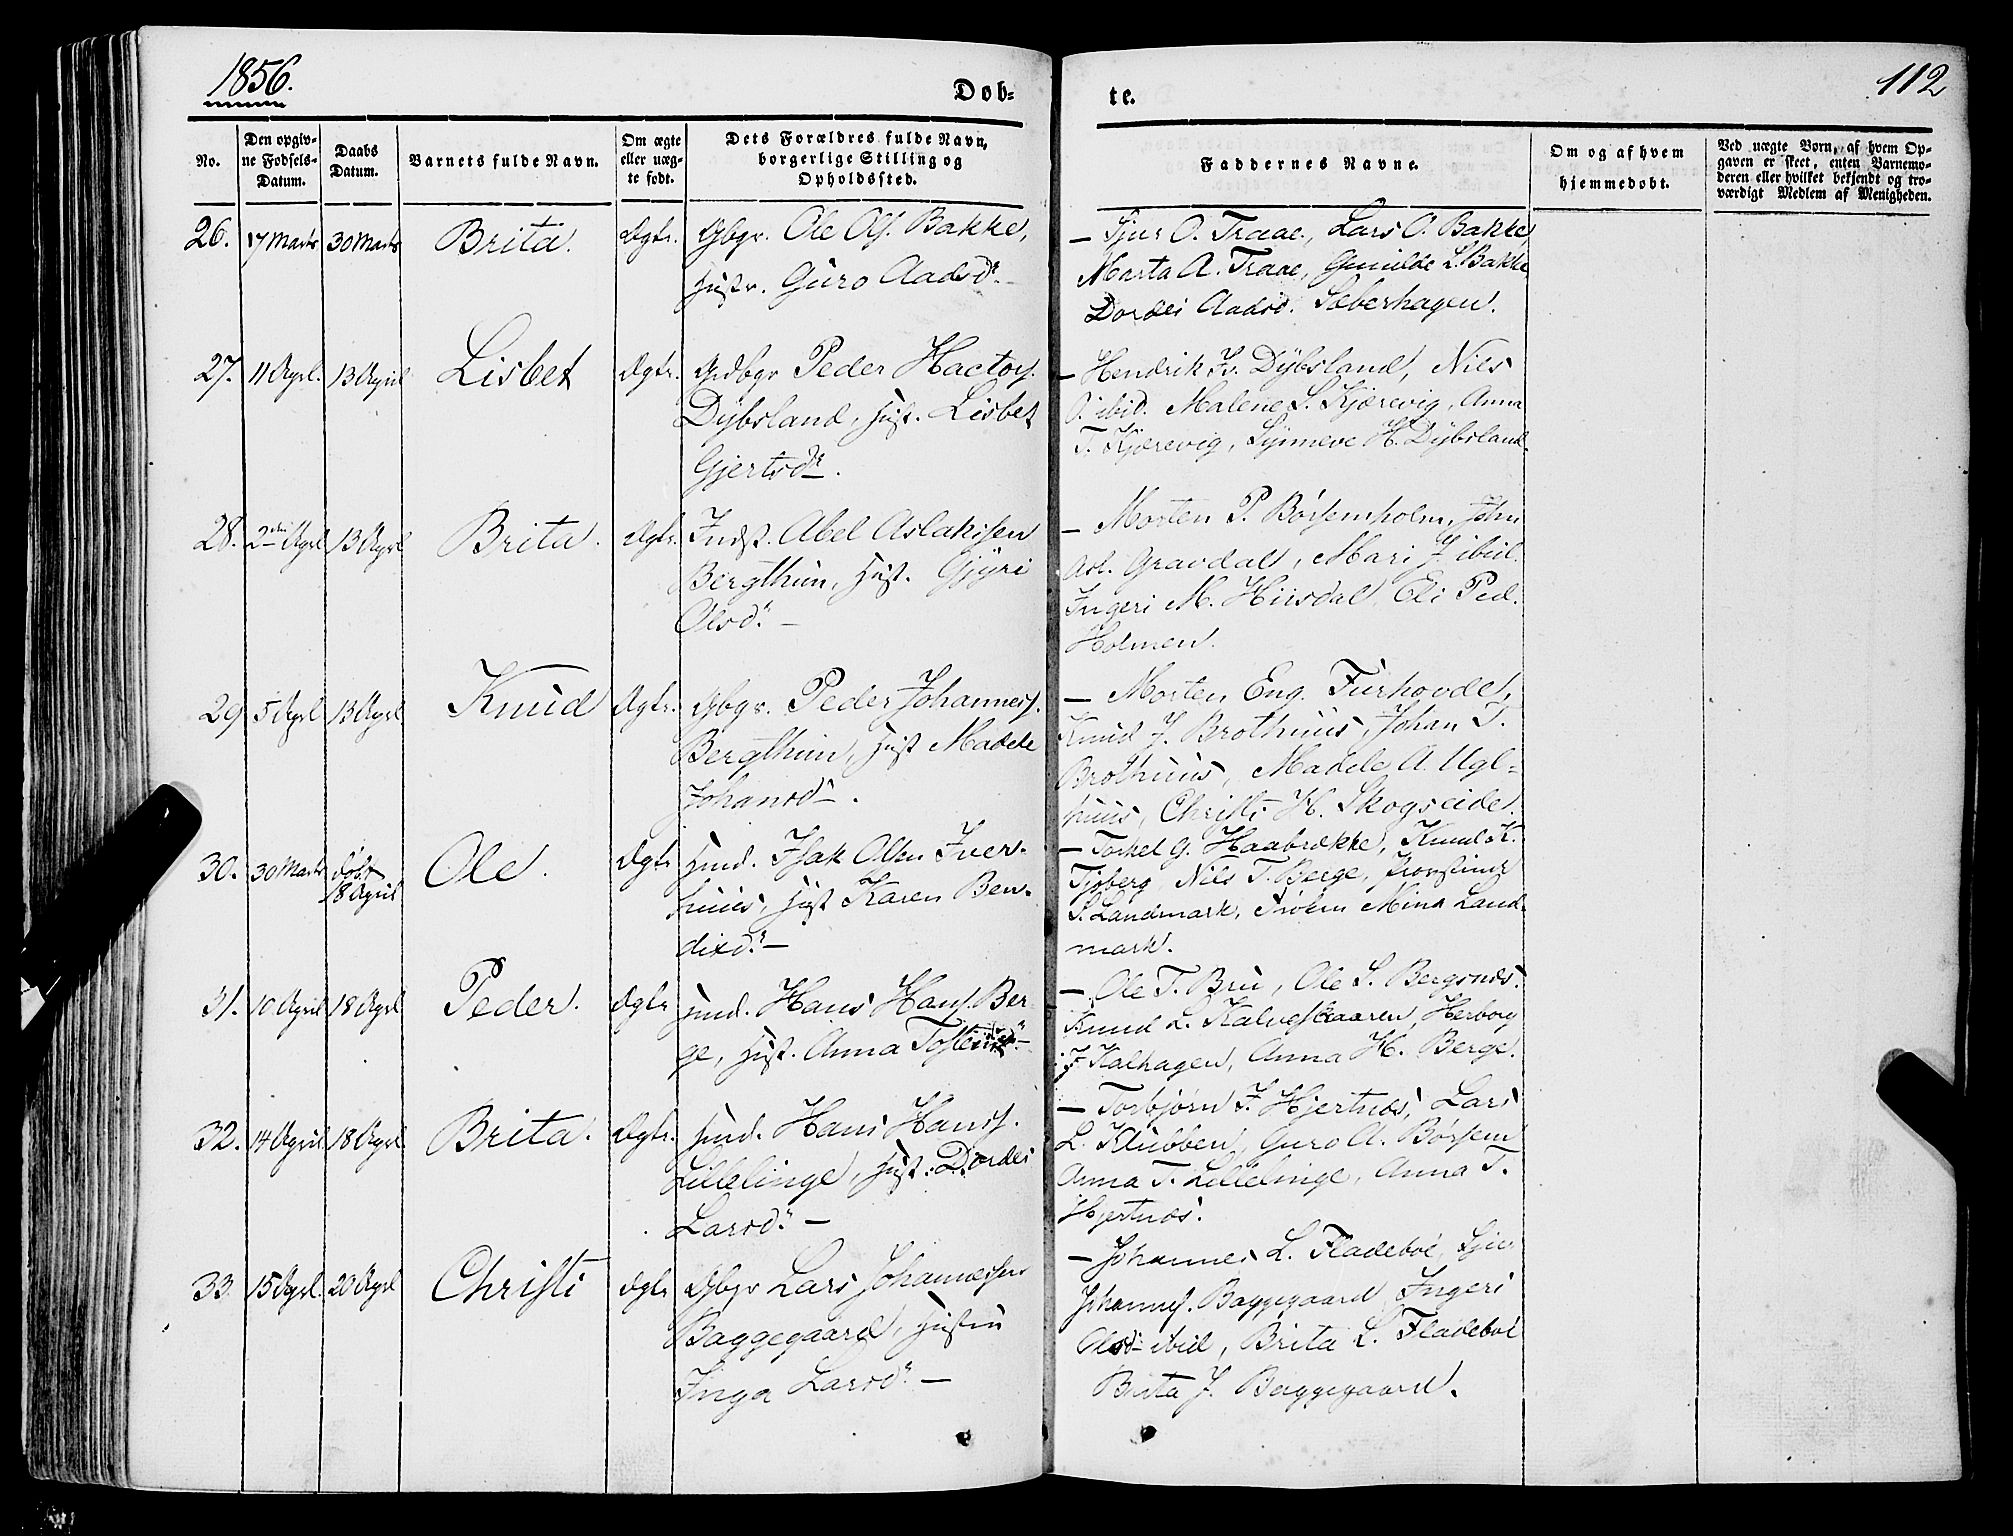 1856.
Døb-
te.
112
No.
Den opgiv-
ne Fødsels-
Datum.
Daabs
Datum.
Barnets fulde Navn.
Om ægte
eller uæg-
te født.
Dets Forældres fulde Navn,
borgerlige Stilling og
Opholdssted.
Faddernes Navne.
Om og af hvem
hjemmedøbt.
Ved uægte Børn, af hvem Op-
gaven er skeet, enten Barnemo-
deren eller hvilket bekjendt og tro-
værdigt Medlem af Menigheden.
26. 17 Marts 30 Marts Brita. Ægte. Gbgr. Ole Ols. Bakke,
Hustr. Guro Aadsdr. –
– Sjur O. Traae, Lars O. Bakke
Marta A. Traae, Gunilde L. Bakke
Dordei Aadsd. Sæberhagen.
27. 11 Aprl. 13 April Lisbet Ægte. Grdbgr Peder Hactors.
Dybsland, Hust. Lisbet
Gjertsdr.
– Hendrik Iv. Dybsland, Nils
O. ibid. Malene S. Kjærevig, Anna
T. Kjærevig, Synneve H. Dybsland.
28. 2den Aprl 13 Aprl Brita. Ægte. Indst. Abel Aslaksen
Bergthun, Hust. Gjyri
Olsdr. –
– Morten P. Børsemholm, John
Asl. Gravdal, Mari J. ibid.
Ingeri M. Hiisdal, Eli Ped.
Holmen.
29 5 Aprl 13 Aprl Knud Ægte. Gbgr. Peder Johanness.
Bergthun, Hust Madele
Johansdr.
– Morten Eng. Furhovde,
Knud J. Brothuus, Johan T.
Brothuus, Madele A. Ugl-
huus, Christi H. Skogseide.
30. 30 Marts døbt
18 April Ole. Ægte Huusmd. Isak Olsen Iver-
huus, Hust Karen Ben-
dixdr. –
– Torkel G. Haabrække, Knud K.
Tjoberg, Nils T. Berge, Provstinde
S. Landmark, Frøken Mina Land-
mark.
31. 10 April 18 Aprl Peder. Ægte Hmd. Hans Hans. Ber-
ge, Hust. Anna
– Ole T. Bru, Ole S. Bergsnæs.
Knud L. Kalveskaaren, Herborg
J. Kalhagen, Anna H. Berge.
32. 14 April 18 Aprl Brita. Ægte. Hmd. Hans Hans.
Lillelinge, Hust. Dordei
Larsdr. –
– Torbjørn J. Hjertnæs, Lars
L. Klubben, Guro A. Børsem
Anna T. Lillelinge, Anna T.
Hjertnæs.
33. 15 Aprl. 20 Aprl Christi Ægte Gbgr Lars Johannessen
Baggegaard, Hustru
Inga Larsdr. –
– Johannes L. Fladebøe,
Johannes. Baggegaard Ingeri
Olsdr ibid, Brita L. Fladebøe
Brita J. Baggegaard.